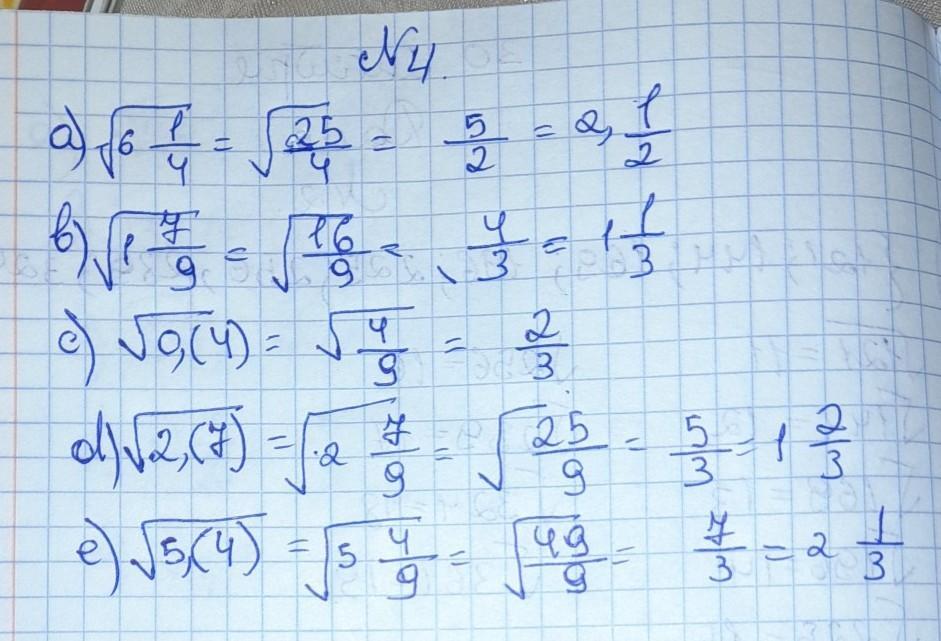 №4.
a) √6 1/4 = √25/4 = 5/2 = 2, 1/2
b) √1 7/9 = √16/9 = 4/3 = 1 1/3
c) √0,(4) = √4/9 = 2/3
d) √2,(7) = √2 7/9 = √25/9 = 5/3 = 1 2/3
e) √5,(4) = √5 4/9 = √49/9 = 7/3 = 2 1/3